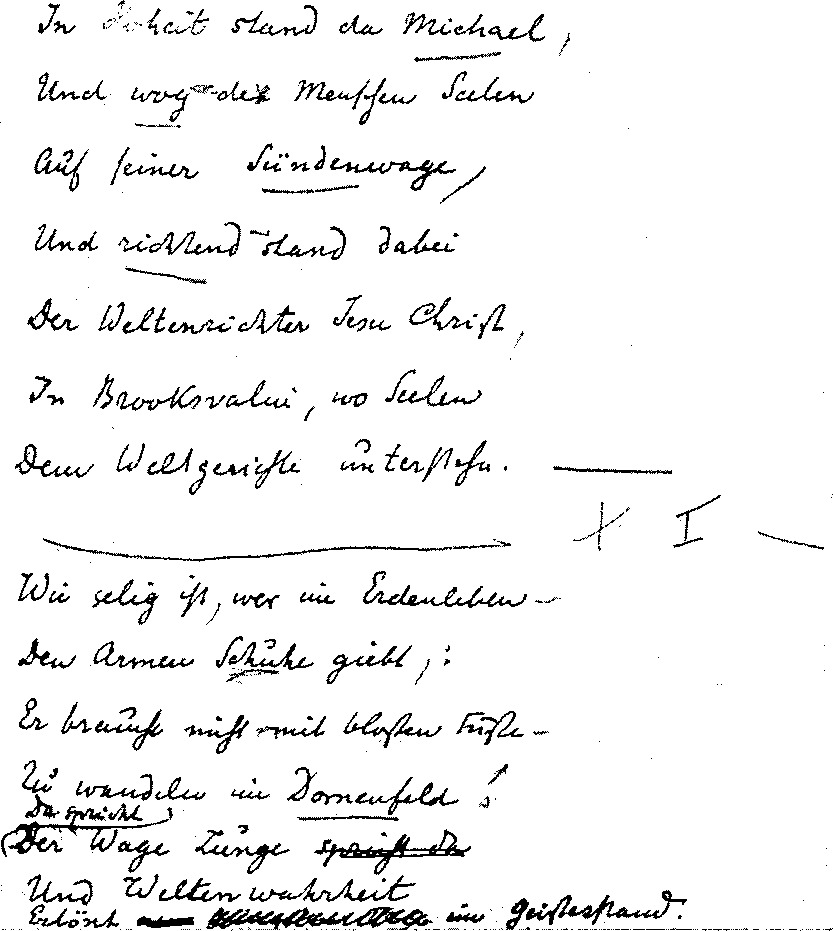 In Hoheit stand da Michael,
Und wog der Menschen Seelen
Auf seiner Sündenwage,
Und richtend stand dabei
Der Weltenrichter Jesu Christ,
In Brooksvalin, wo Seelen
Dem Weltgerichte unterstehn. —
+ I —
Wie selig ist, wer im Erdenleben –
Den Armen Schuhe giebt, :
Er braucht nicht mit bloßen Füße –
Zu wandeln im Dornenfeld!
Da spricht
(Der Wage Zunge spricht da
Und Weltenwahrheit
Ertönt im Geistesstand.